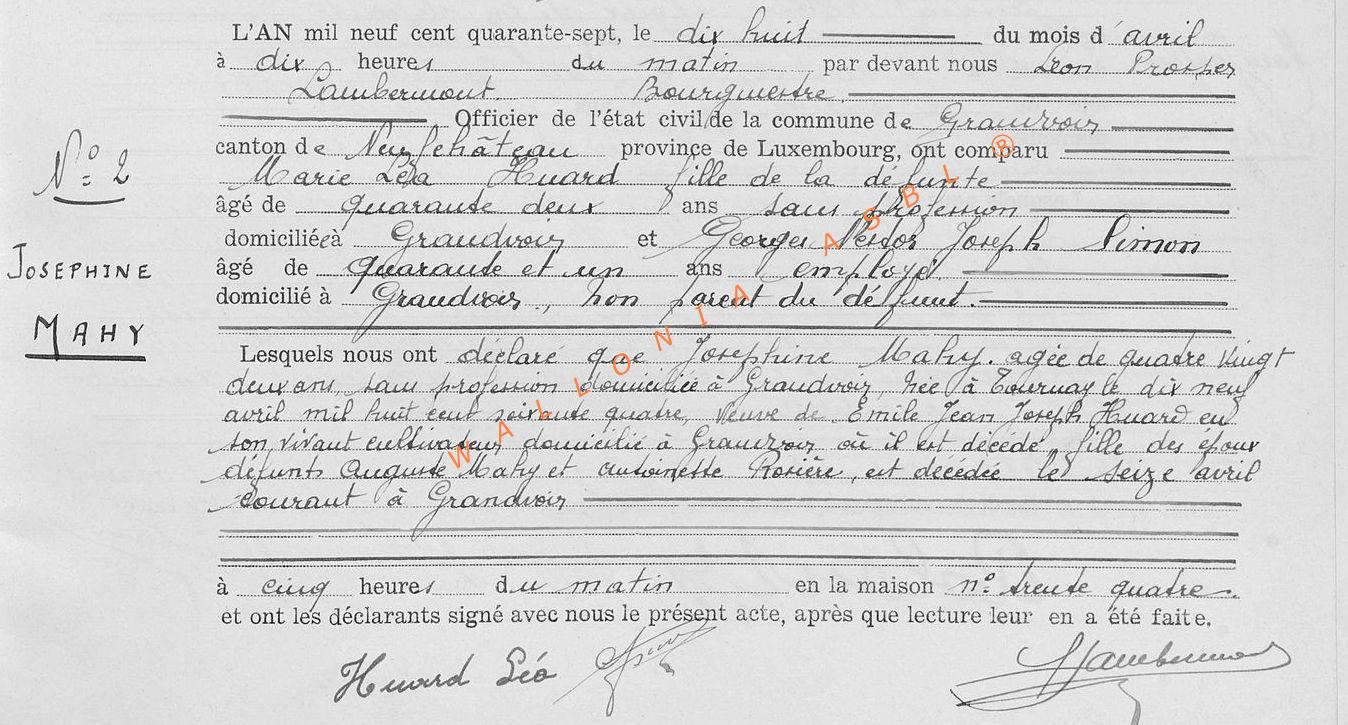 L'AN mil neuf cent quarante-sept, le dix huit du mois d'avril
à dix heures du matin par devant nous Léon Prosper
Lambermont. Bourgmestre.
Officier de l'état civil de la commune de Grandvoir
canton de Neufchâteau province de Luxembourg, ont comparu
N° 2
Marie Léa Huard fille de la défunte
âgé de quarante deux ans sans profession
domiciliée à Grandvoir et Georges Nestor Joseph Simon
JOSEPHINE
âgé de quarante et un ans employé
domicilié à Grandvoir, non parent du défunt.
MAHY
Lesquels nous ont déclaré que Joséphine Mahy. agée de quatre vingt
deux ans, sans profession domiciliée à Grandvoir, née à Tournay le dix neuf
avril mil huit cent soixante quatre, veuve de Emile Jean Joseph Huard en
son vivant cultivateur domicilié à Grandvoir où il est décédé, fille des époux
défunts Auguste Mahy et Antoinette Rosière, est décédée le seize avril
courant à Grandvoir
à cinq heures du matin en la maison n° trente quatre.
et ont les déclarants signé avec nous le présent acte, après que lecture leur en a été faite.
Huard Léa Lambermont
WALLONIA ASBL ®